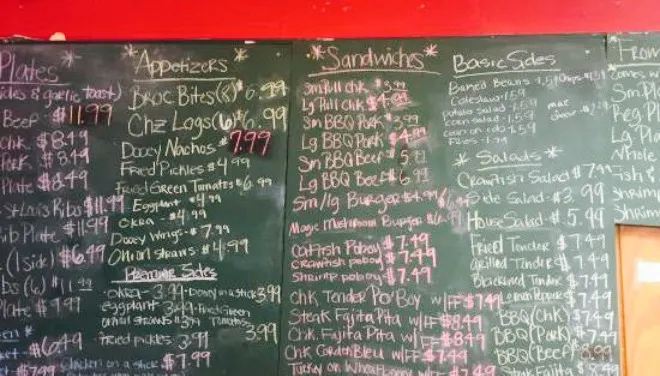 Plates *
& garlic toast)
Beef - $11.99
chk. $8.49
Pork $8.49
Plate $8.49
St. Louis Ribs $11.99
Rib Plate $11.99
(1 side) $6.49
Ribs (6) $11.99
Plate $7.99
$6.49
$7.99
* Appetizers *
Broc Bites (8) $6.99
Chz Logs (6) $6.99
Dooey Nachos $7.99
Fried Pickles $4.99
Fried Green Tomatoes $6.99
Eggplant - $4.99
Okra - $4.99
Dooey Wings - $7.99
Onion straws $4.99
Premium Sides
okra - 3.99 - Dooey on a stick 3.99
eggplant - 3.99 - Fried Green
onion straws $3.99 Tomatoes
Fried pickles 3.99 3.99
Chicken on a stick $7.99
* Sandwiches *
Sm Pull chk. $3.99
Lg Pull chk $4.99
Sm BBQ Pork $3.99
Lg BBQ Pork $4.99
Sm BBQ Beef $5.
Lg BBQ Beef $6.
Sm/lg Burger $4.99/
Magic Mushroom Burger
Catfish Poboy $7.49
Crawfish poboy $7.49
Shrimp poboy $7.49
Chk Tender Po'Boy w/FF $7.49
Steak Fajita Pita w/FF $8.49
Chk. Fajita Pita w/FF $8.49
Chk Cordon Bleu w/FF $7.49
Turkey on Wheat
Basic Sides
Baked Beans 1.59 Chips
Coleslaw 1.59
potato salad 1.59 mac
corn salad 1.59 cheese
corn on cob 1.59
Fries 1.79
* Salads *
Crawfish Salad $7.99
Side Salad $3.99
House Salad $5.99
Fried Tender $7.49
Grilled Tender $7.49
Blackened Tender $7.49
Lemon Pepper $7.49
BBQ (Chk) $7.49
BBQ (Pork) $7.49
BBQ (Beef) 8.99
Steak Fajita $8.49
From
Comes w
Sm Pla
Reg Pl
Lg Pla
Whole
Fish &
Shrimp
Shrim